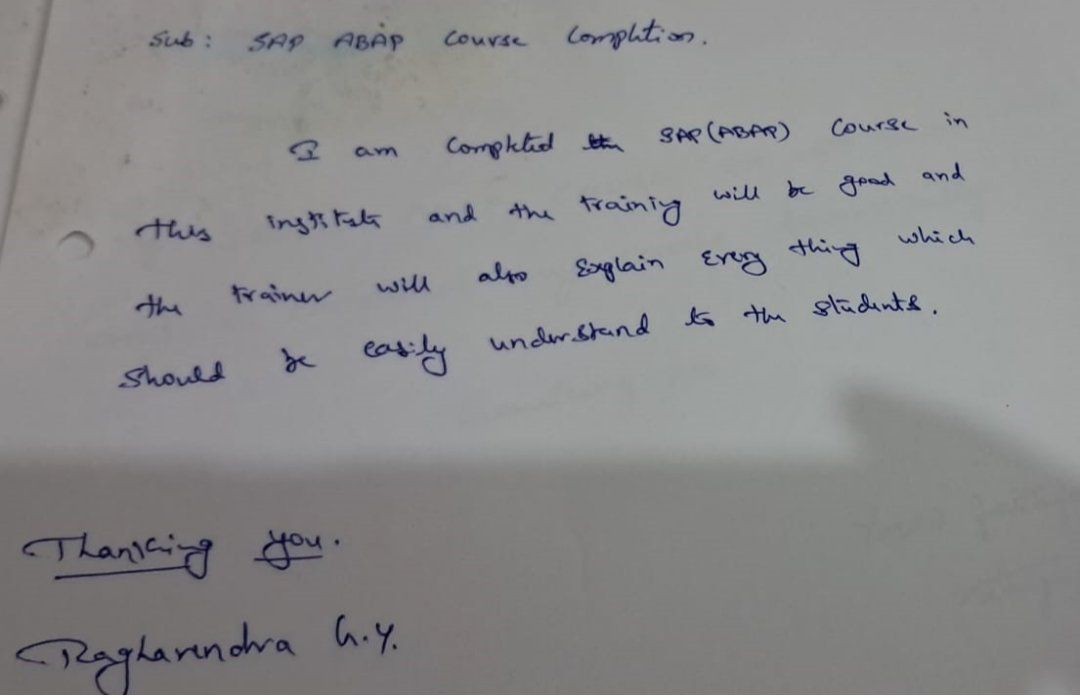 Sub: SAP ABAP Course Completion.
I am Completed SAP(ABAP) Course in
this institute and the training will be good and
the trainer will also Explain Every thing which
should be easily understand to the students.
Thanking you.
Raghavendra G.Y.